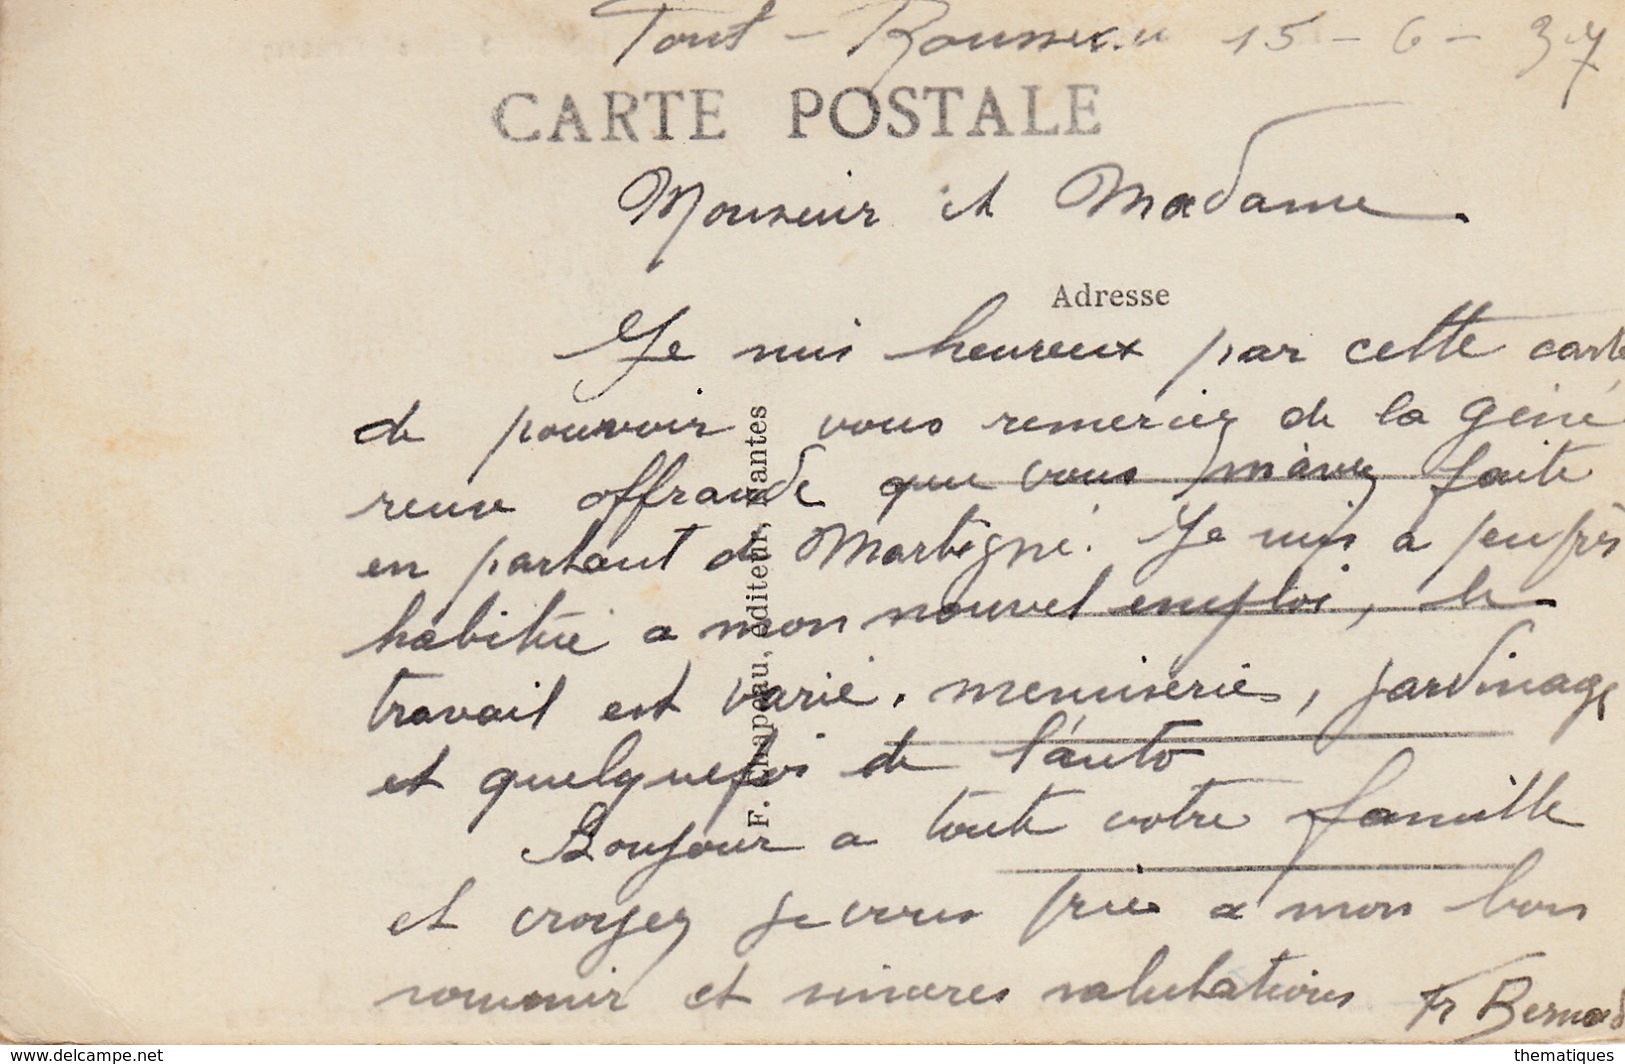 Pont-Rousseau 15-6-37
CARTE POSTALE
Monsieur et Madame.
Adresse
Je suis heureux par cette carte
de pouvoir vous remerciez de la géné
reuse offrande que vous m'avez faite
en partant de Martigné. Je suis a peu près
habitué a mon nouvel emploi, le
travail est varié. menuiserie, jardinage
et quelquefois de l'auto
Bonjour a toute votre famille
et croyez je vous prie a mon bon
souvenir et sincères salutations Fr Bernard
F. Chapeau, éditeur, Nantes
https://www.delcampe.net
thematiques